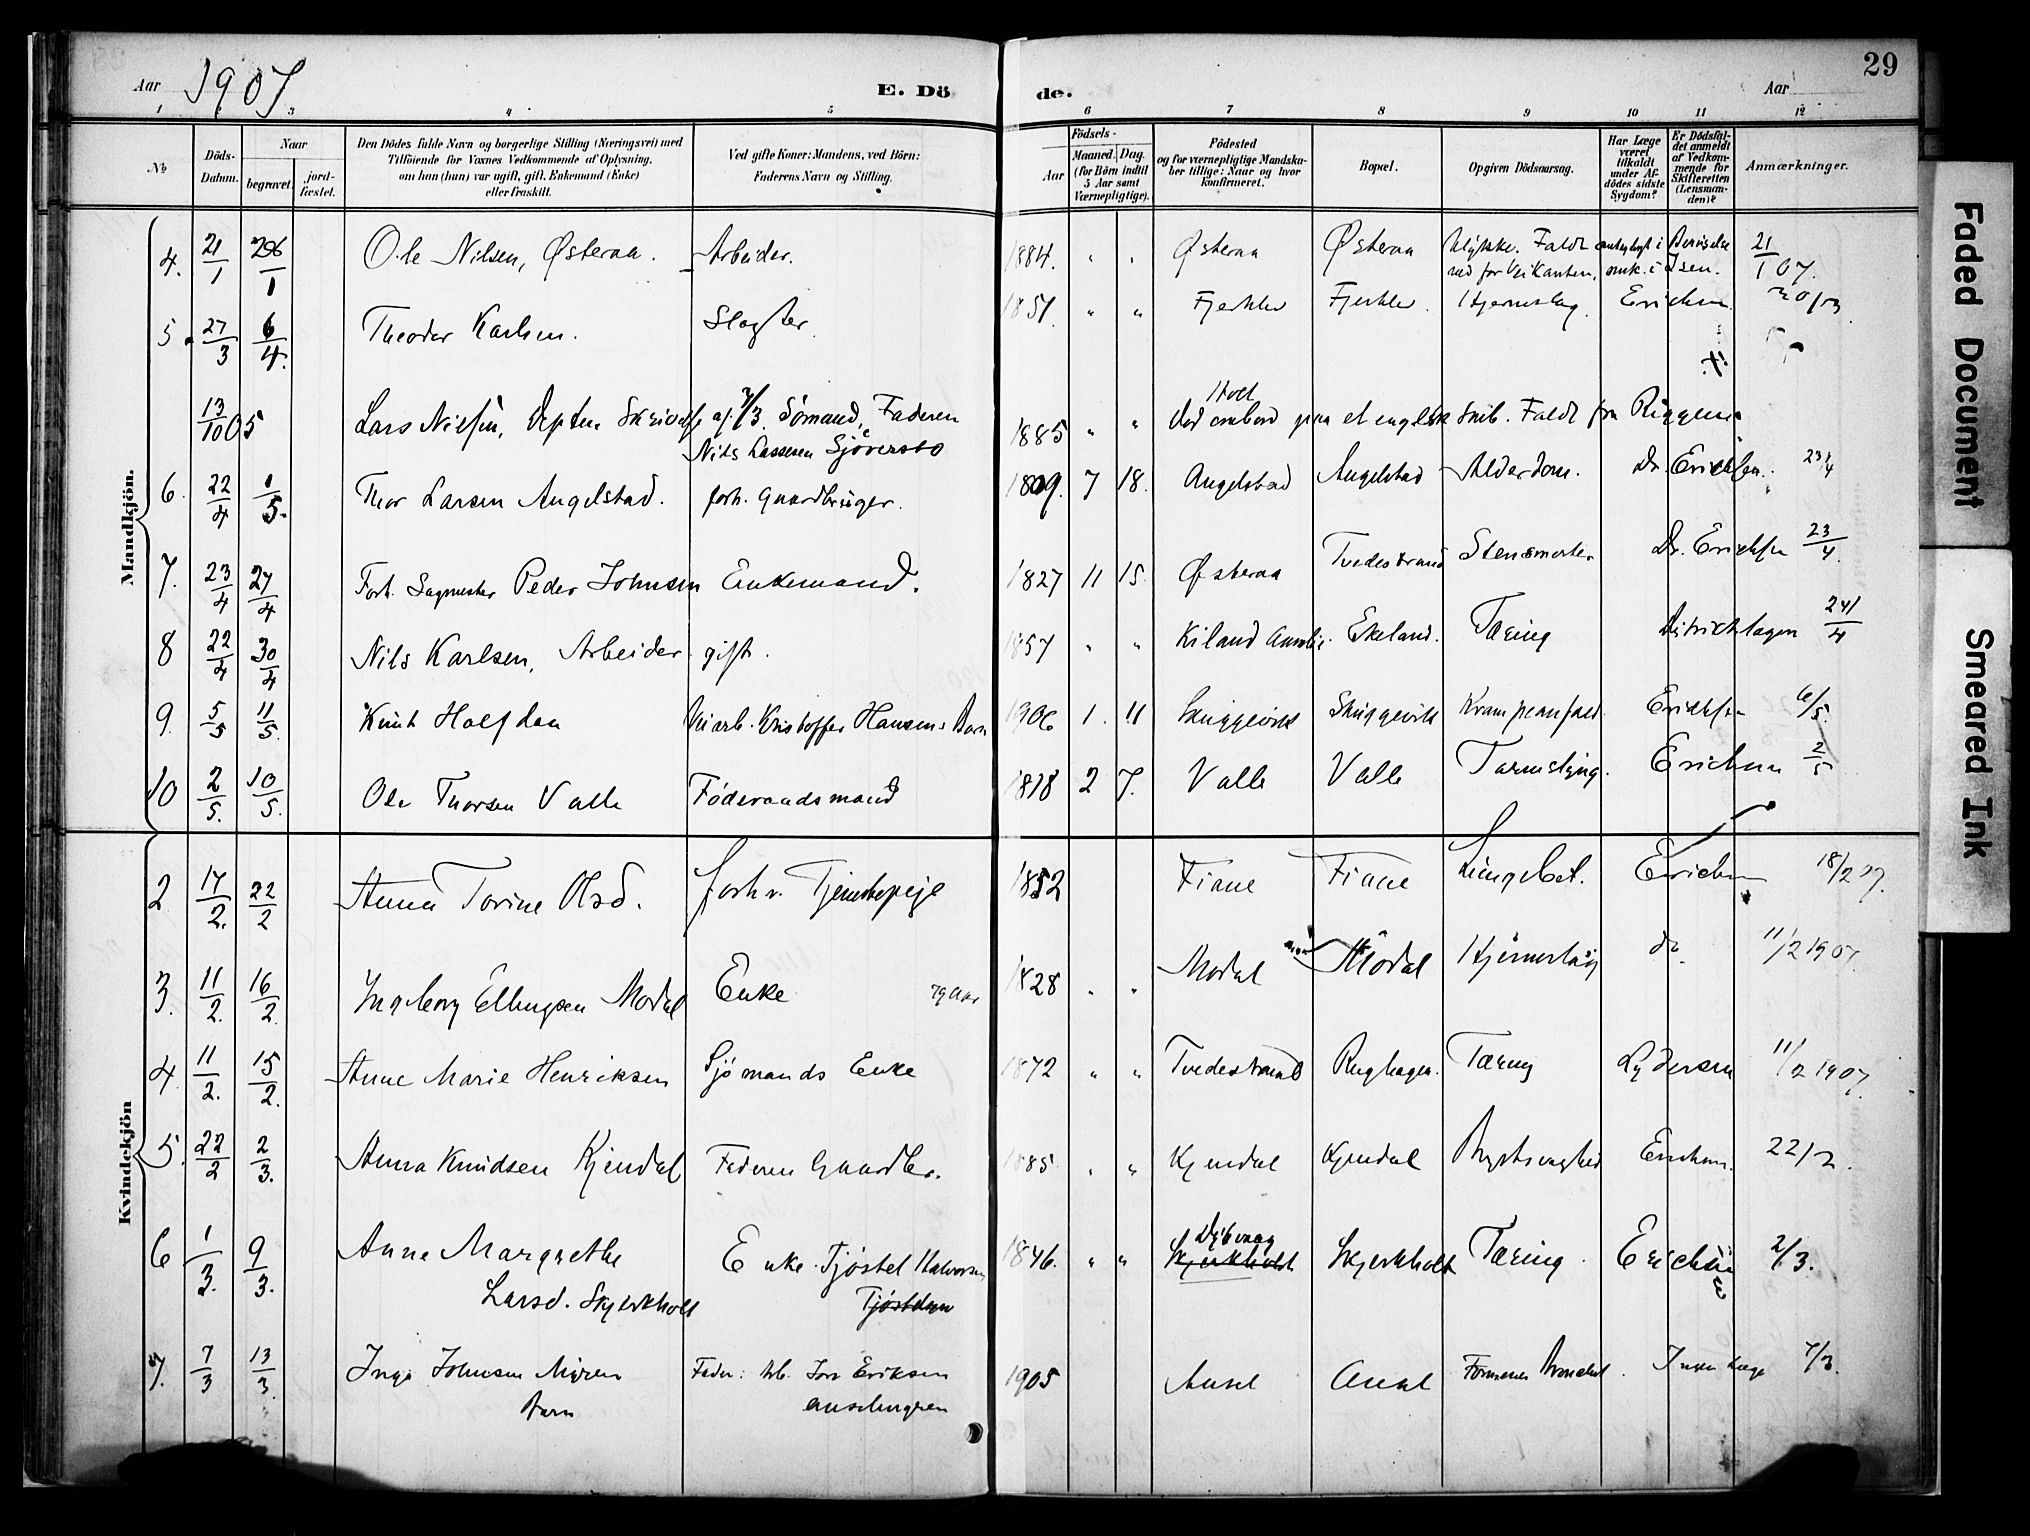 29
Aar 1907
E. Dö de.
Aar
1 2 3 4 5 6 7 8 9 10 11 12
№
Döds-Datum.
Naar
begravet.
jord-fæstet.
Den Dödes fulde Navn og borgerlige Stilling (Næringsvei) med
Tilföiende for Voxnes Vedkommende af Oplysning,
om han (hun) var ugift, gift, Enkemand (Enke)
eller fraskilt.
Ved gifte Koner: Mandens, ved Börn:
Faderens Navn og Stilling.
Födsels-
Aar
Maaned. Dag.
(for Börn indtil
5 Aar samt
Værnepligtige).
Födested
og for værnepligtige Mandska-
ber tillige: Naar og hvor
konfirmeret.
Bopæl.
Opgiven Dödsaarsag.
Har Læge
været
tilkaldt
under Af-
dödes sidste
Sygdom?
Er Dödsfal-
det anmeldt
af Vedkom-
mende for
Skifteretten
(Lensman-
den)?
Anmærkninger.
Mandkjön.
4. 21/1 26/1 Ole Nilsen, Østeraa. Arbeider. 1884. " " Østeraa Østeraa Ulykke. Faldt i 21/1 07.
ned for Veikanten, omk. i Isen.
5. 27/3 6/4. Theodor Karlsen. Slagter. 1851. " " Fjerkler Fjerkler Hjerneslag. Erichsen 30/3.
13/10 05 Lars Nilsen, Sømand, Faderen 1885 " " Holt
Død ombord paa et engelsk Skib. Faldt fra Riggen
Nils Lassesen Sjøversbo
6. 22/4 1/5. Thor Larsen Angelstad. forh. Gaardbruger. 1809. 7 18. Angelstad Angelstad Alderdom. Dr. Erichsen. 23/4
7. 23/4 27/4 Forh. Sagmester Peder Johnsen Enkemand. 1827 11 15. Østeraa Tvedestrand Stensmerter Dr. Erichsen 23/4.
8 22/4 30/4 Nils Karlsen, Arbeider gift. 1857 " " Kiland Ekeland. Tæring Distriktslægen 24/4
9. 5/5 11/5. Knut Halfdan Veiarb. Kristoffer Hansens Barn 1906 1. 11 Skuggevik Skuggevik Krampeanfald Erichsen 6/5.
10 2/5. 10/5. Ole Thorsen Valle Föderaadsmand 1818 2 7. Valle Valle Tarmslyng. Erichsen 2/5
Kvindekjön
2 17/2. 22/2 Anna Torine Olsd. forhv. Tjenestepige 1852 Fiane Fiane Lungebet. Erichsen 18/2 07.
3. 11/2. 16/2. Ingeborg Ellingsen Modal Enke 79 Aar 1828 " " Modal Modal Hjerneslag do. 11/2 1907.
4. 11/2. 15/2. Anne Marie Henriksen Sjömands Enke 1872 " " Tvedestrand Rughagen. Tæring Lydersen 11/2 1907.
5. 22/2 2/3. Anna Knudsen Kjendal Faderen Gaardbr. 1885. " " Kjendal Kjendal Brystsvaghed Erichsen. 22/2.
6 1/3. 9/3. Anne Margrethe Enke. Tjøstel Halvorsen 1846. " " Dybvaag
Skjerkholt Skjerkholt Tæring. Erichsen 2/3.
Larsd. Skjerkholt Tjøstelsen
7. 7/3 13/3. Inga Johnsen Myren Fader: Arb. Eriksen 1905 Ansel Ansel Ingen Læge 7/3.
Barn
Faded Document
Smeared Ink